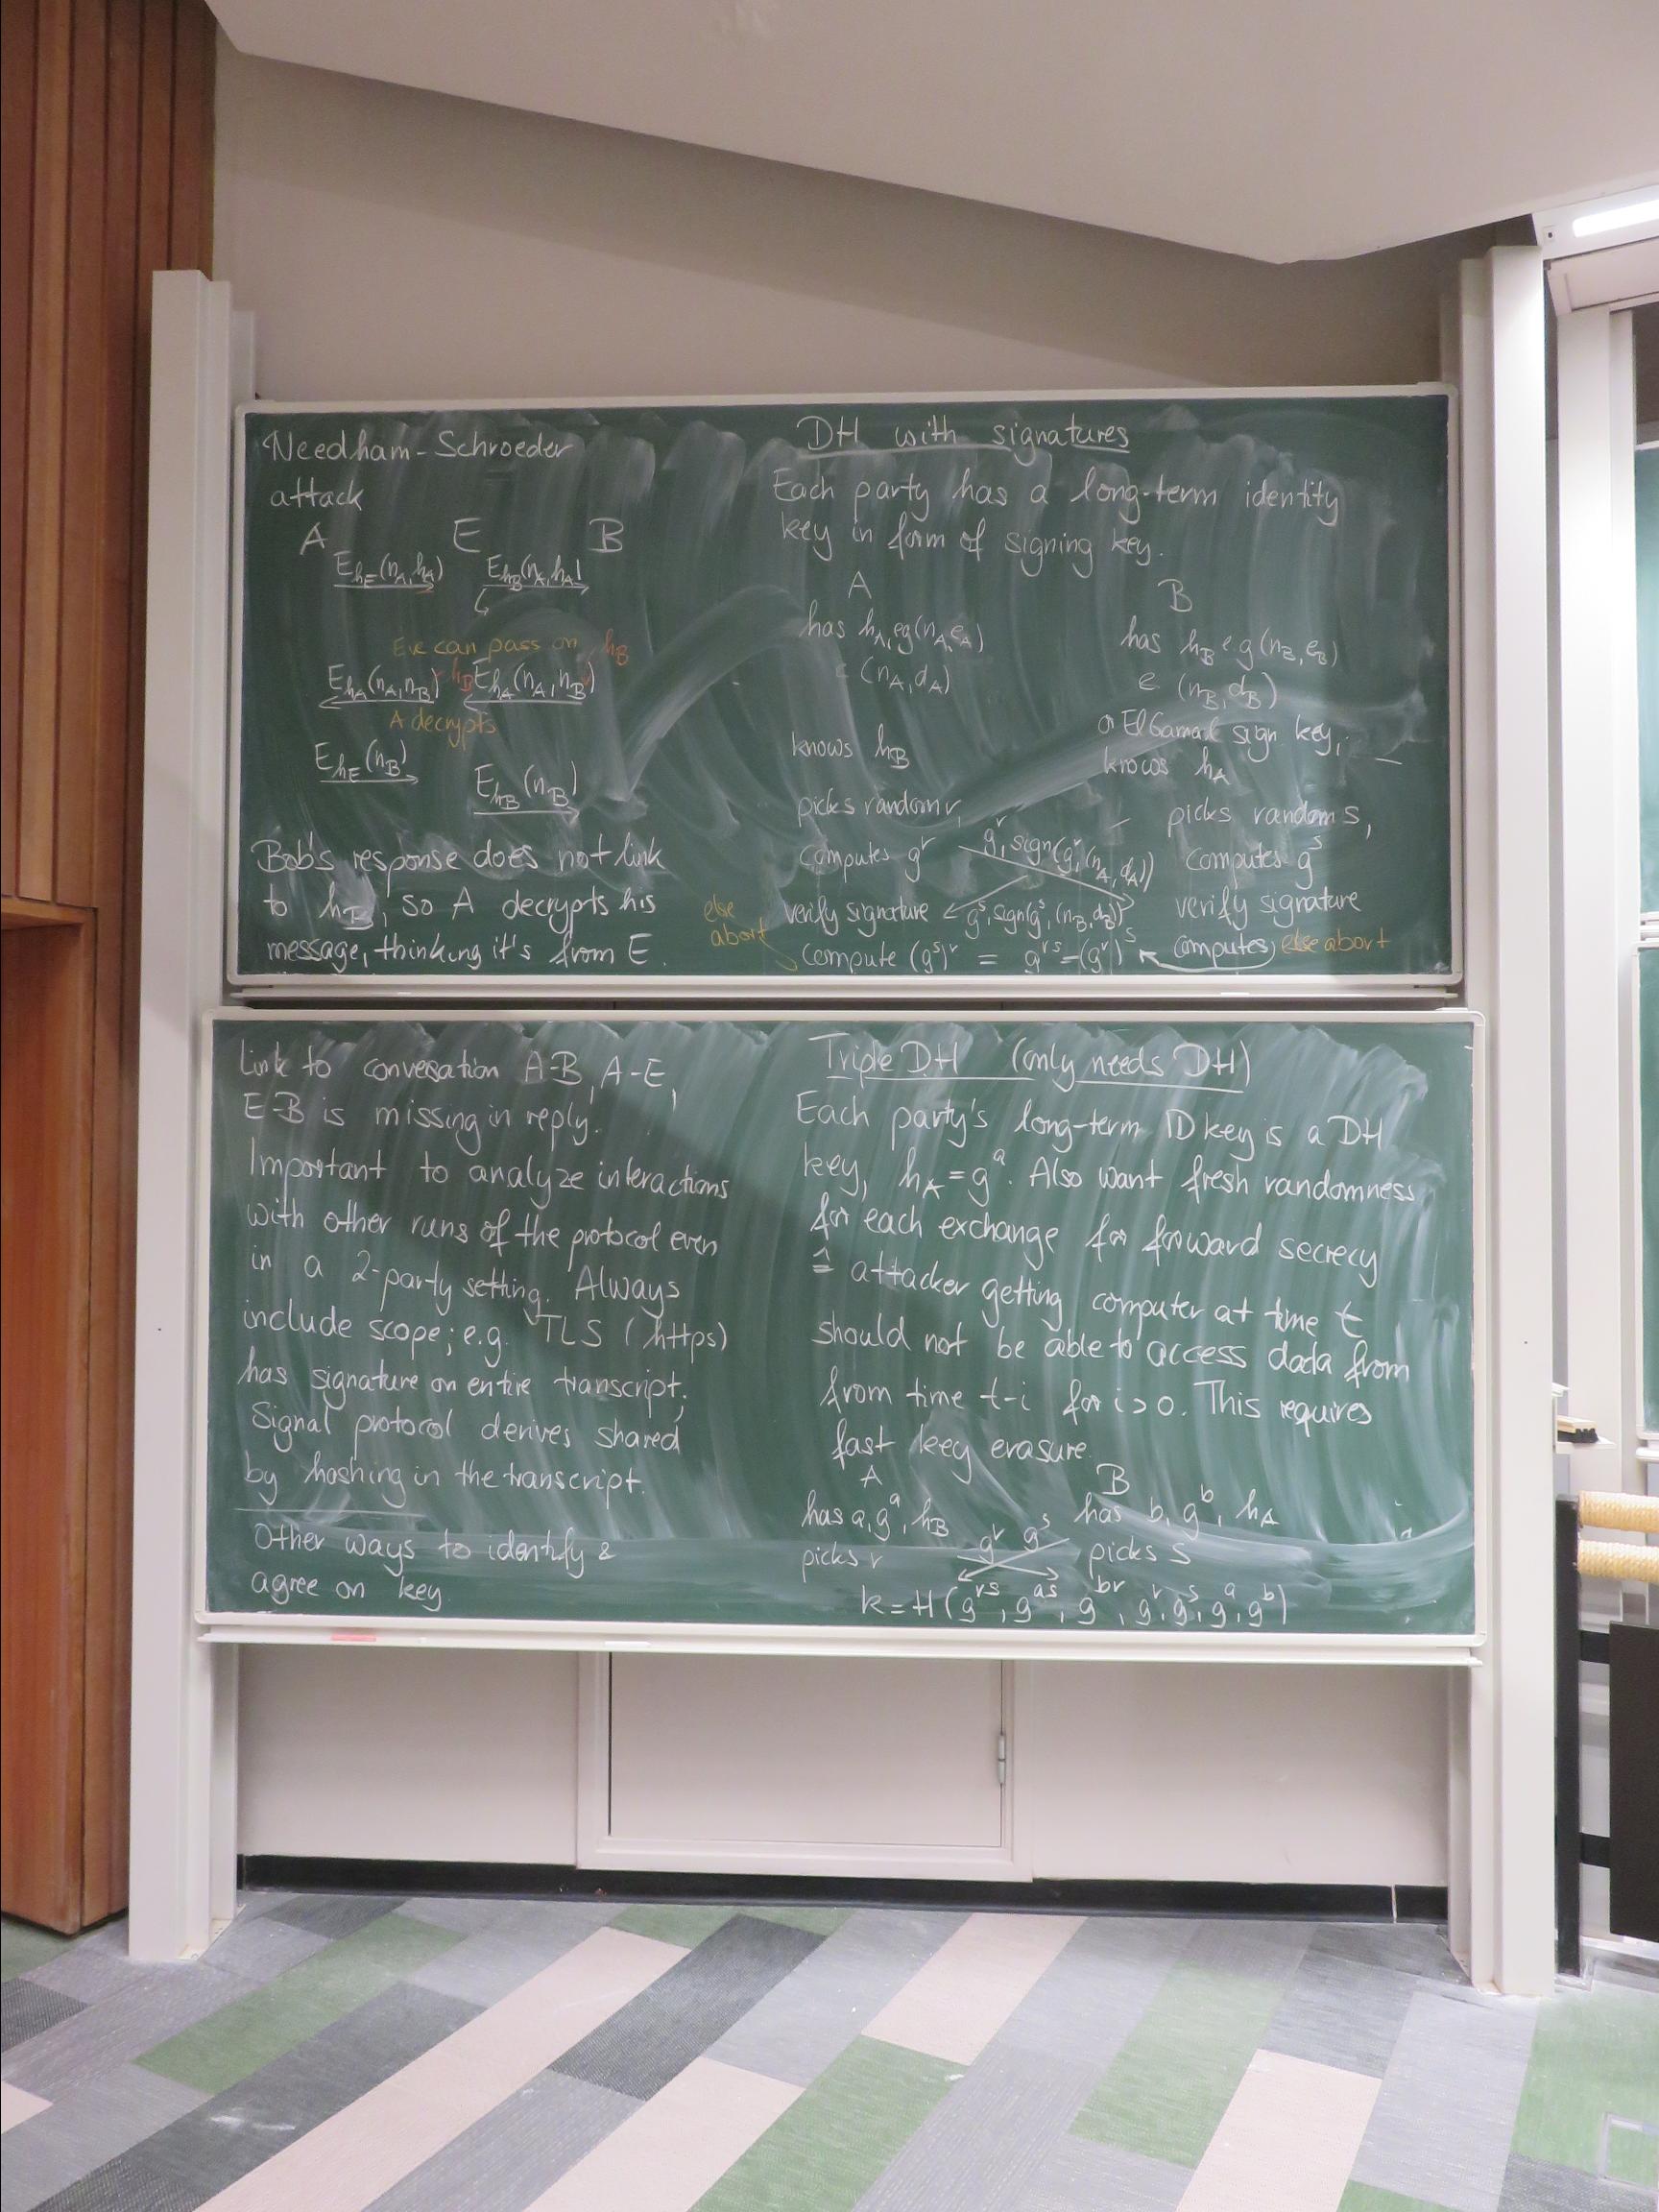 Needham-Schroeder
attack
A E B
E_{h_E}(n_A, h_A) E_{h_B}(n_A, h_A)
Eve can pass on h_B
E_{h_A}(n_A, n_B) h_B E_{h_A}(n_A, n_B)
A decrypts
E_{h_E}(n_B)
E_{h_B}(n_B)
Bob's response does not link
to h_B, so A decrypts his
message, thinking it's from E.
DH with signatures
Each party has a long-term identity
key in form of signing key.
A B
has h_A, eg (n_A, e_A) has h_B e.g (n_B, e_B)
(n_A, d_A) (n_B, d_B)
or ElGamal sign key,
knows h_B knows h_A
picks random r, picks random s,
computes g^r g^r, sign(g^r, (n_A, d_A)) computes g^s
else abort verify signature g^s, sign(g^s, (n_B, d_B)) verify signature
compute (g^s)^r = g^{rs} = (g^r)^s computes else abort
Link to conversation A-B, A-E,
E-B is missing in reply.
Important to analyze interactions
with other runs of the protocol even
in a 2-party setting. Always
include scope; e.g. TLS (https)
has signature on entire transcript;
Signal protocol derives shared
by hashing in the transcript.
Other ways to identify &
agree on key
Triple DH (only needs DH)
Each party's long-term ID key is a DH
key, h_A = g^a. Also want fresh randomness
for each exchange for forward secrecy
≙ attacker getting computer at time t
should not be able to access data from
from time t-i for i>0. This requires
fast key erasure.
A B
has a, g^a, h_B has b, g^b, h_A
picks r g^r g^s picks s
k = H(g^{rs}, g^{as}, g^{br}, g^r, g^s, g^a, g^b)